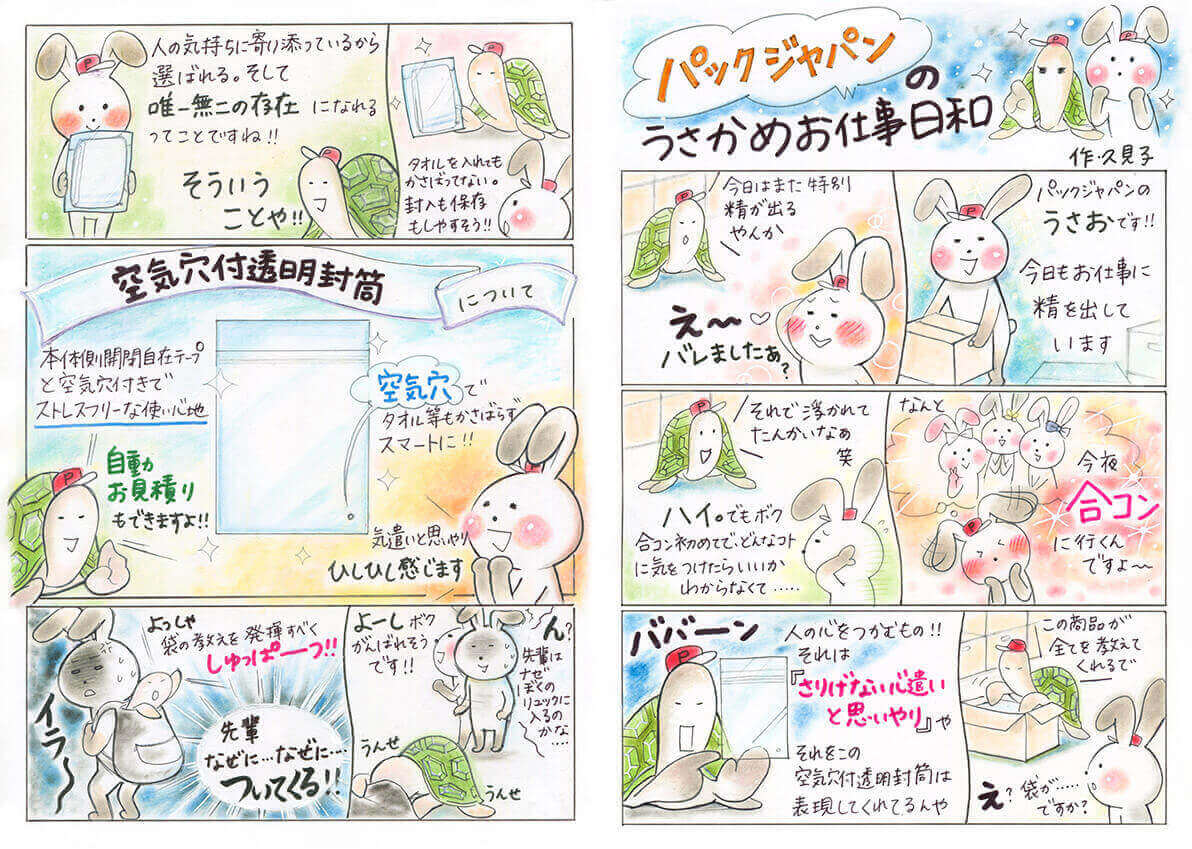 パックジャパン
の
うさかめお仕事日和
作・久見子
パックジャパンの
うさおです!!
今日もお仕事に
精を出して
います
今日はまた特別
精が出る
やんか
え〜
バレましたぁ?
なんと
今夜
合コン
に行くん
ですよ〜
それで浮かれて
たんかいなぁ
笑
ハイ。でもボク
合コン初めてで、どんなコト
に気をつけたらいいか
わからなくて……
この商品が
全てを教えて
くれるで
え?袋が……
ですか?
ババーン
人の心をつかむもの!!
それは
『さりげない心遣い
と思いやり』や
それをこの
空気穴付透明封筒は
表現してくれてるんや
タオルを入れても
かさばってない。
封入も保存
もしやすそう!!
人の気持ちに寄り添っているから
選ばれる。そして
唯一無二の存在になれる
ってことですね!!
そういう
ことや!!
空気穴付透明封筒
について
本体側開閉自在テープ
と空気穴付きで
ストレスフリーな使い心地
空気穴で
タオル等もかさばらず
スマートに!!
自動
お見積り
もできますよ!!
気遣いと思いやり
ひしひし感じます
よーしボク
がんばれそう
です!!
ん?
先輩は
ナゼ
ぼくの
リュックに
入るの
かな…
うんせ
うんせ
よっしゃ
袋の教えを発揮すべく
しゅっぱーつ!!
イラ〜
先輩
なぜに…なぜに…
ついてくる!!
P
P
P
P
P
P
P
P